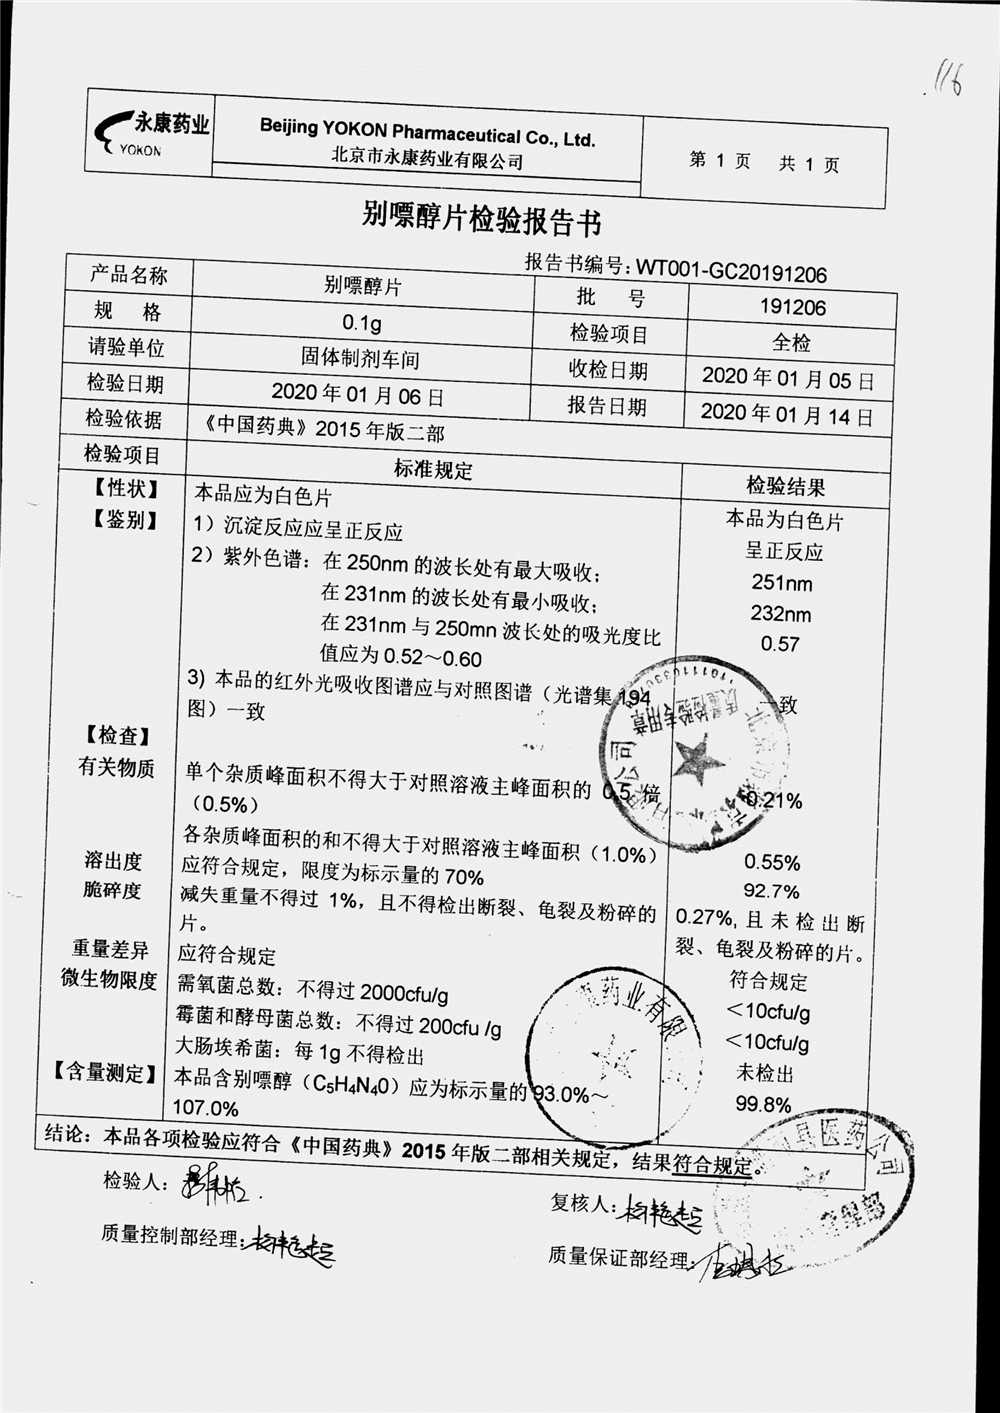 116
永康药业
YOKON
Beijing YOKON Pharmaceutical Co., Ltd.
北京市永康药业有限公司
第 1 页 共 1 页
别嘌醇片检验报告书
报告书编号：WT001-GC20191206
产品名称 别嘌醇片 批 号 191206
规 格 0.1g 检验项目 全检
请验单位 固体制剂车间 收检日期 2020 年 01 月 05 日
检验日期 2020 年 01 月 06 日 报告日期 2020 年 01 月 14 日
检验依据 《中国药典》2015 年版二部
检验项目 标准规定 检验结果
【性状】 本品应为白色片 本品为白色片
【鉴别】 1）沉淀反应应呈正反应 呈正反应
2）紫外色谱：在 250nm 的波长处有最大吸收； 251nm
在 231nm 的波长处有最小吸收； 232nm
在 231nm 与 250mn 波长处的吸光度比 0.57
值应为 0.52～0.60
3) 本品的红外光吸收图谱应与对照图谱（光谱集 194 一致
图）一致
【检查】
有关物质 单个杂质峰面积不得大于对照溶液主峰面积的 0.5 倍 0.21%
（0.5%）
各杂质峰面积的和不得大于对照溶液主峰面积（1.0%） 0.55%
溶出度 应符合规定，限度为标示量的 70% 92.7%
脆碎度 减失重量不得过 1%，且不得检出断裂、龟裂及粉碎的 0.27%, 且未检出断
片。 裂、龟裂及粉碎的片。
重量差异 应符合规定 符合规定
微生物限度 需氧菌总数：不得过 2000cfu/g ＜10cfu/g
霉菌和酵母菌总数：不得过 200cfu /g ＜10cfu/g
大肠埃希菌：每 1g 不得检出 未检出
【含量测定】 本品含别嘌醇（C5H4N40）应为标示量的 93.0%～ 99.8%
107.0%
结论：本品各项检验应符合《中国药典》2015 年版二部相关规定，结果符合规定。
检验人： 复核人：
质量控制部经理： 质量保证部经理：
质量检验专用章
药业有限
县医药公司